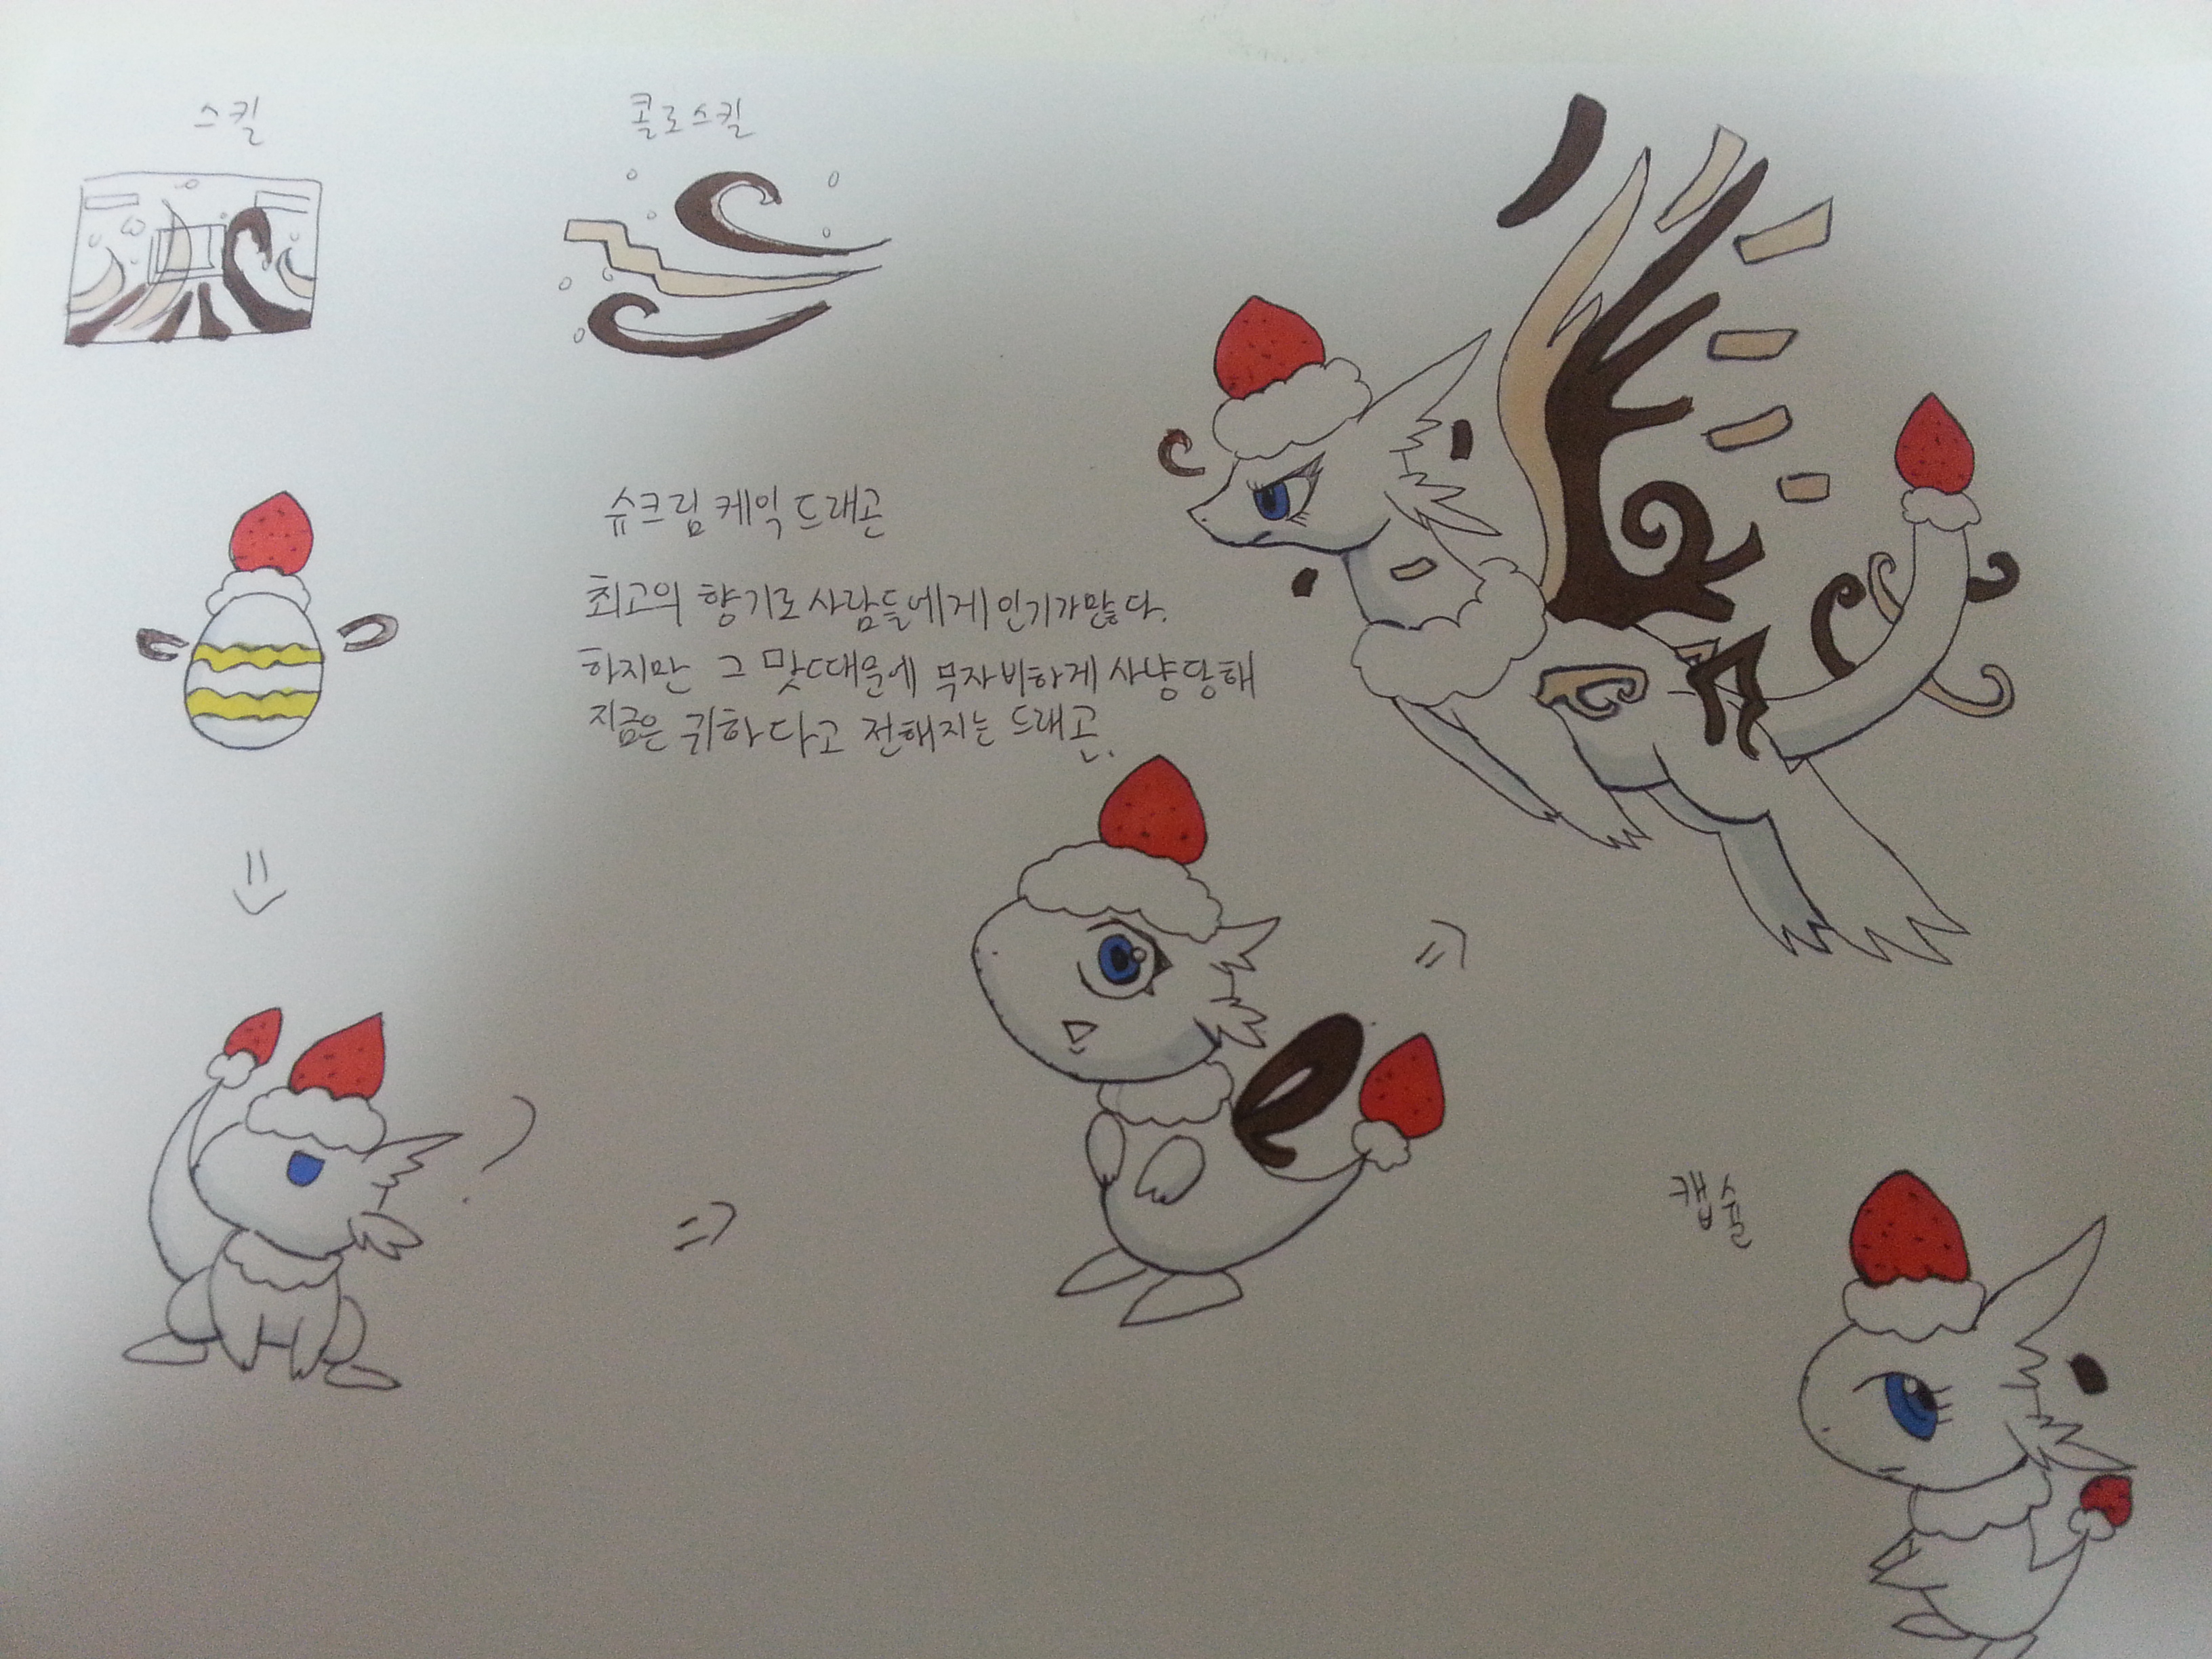 스킬
콜로스킬
슈크림 케익 드래곤
최고의 향기로 사람들에게 인기가많다.
하지만 그 맛때문에 무자비하게 사냥당해
지금은 귀하다고 전해지는 드래곤.
캡슐